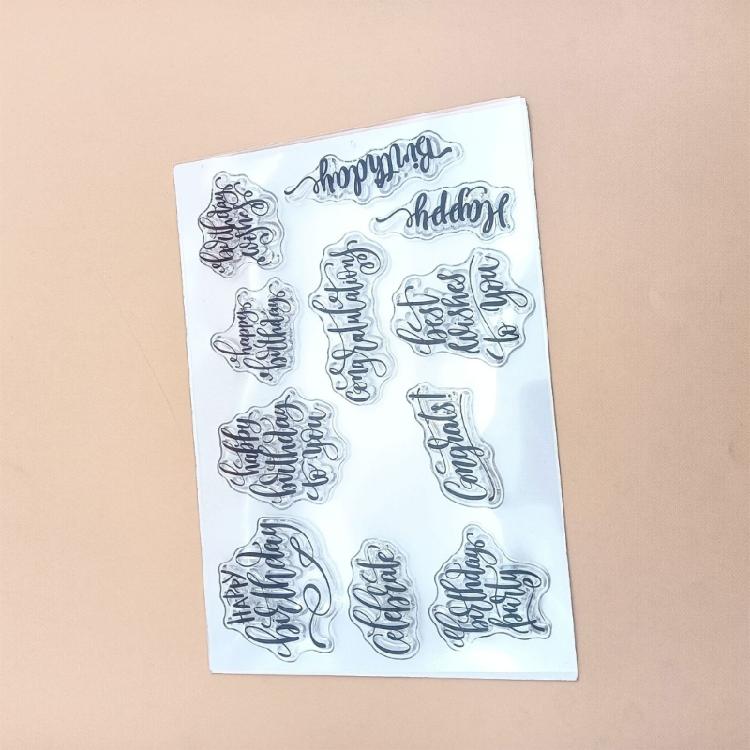 HAPPY
birthday
happy
birthday
to you
happy
birthday
birthday
wishes
Celebrate
Congratulations
birthday
party
Congrats!
best
wishes
to you
Birthday
Happy